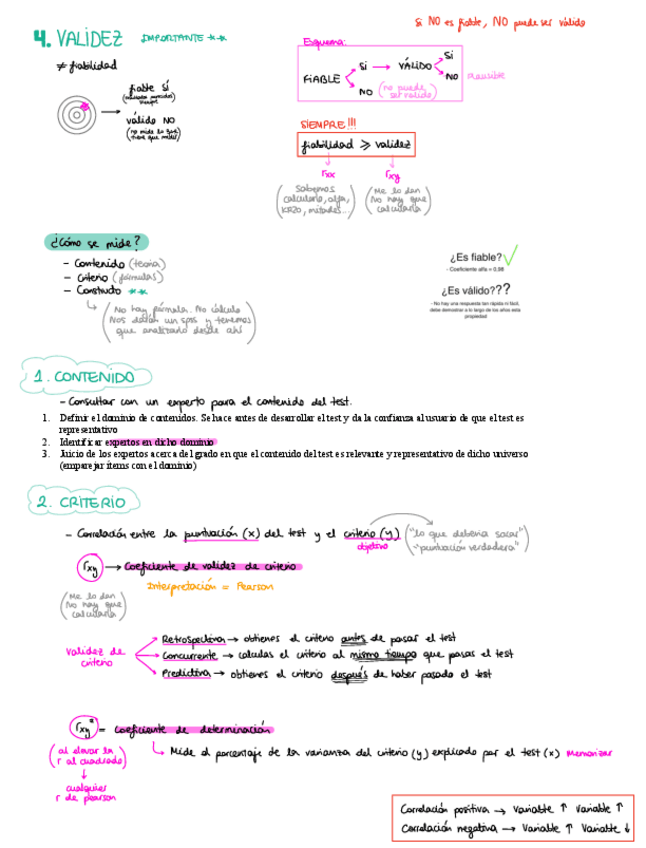 Si NO es fiable, NO puede ser válido
4. VALIDEZ IMPORTANTE **
≠ fiabilidad
fiable SÍ
(resultados parecidos siempre)
válido NO
(no mide lo que tiene que medir)
Esquema:
FIABLE
Si → VÁLIDO
Si
NO plausible
NO (no puede ser válido)
SIEMPRE!!!
fiabilidad ≥ validez
rxx
rxy
(Sabemos calcularlo, alfa, KR20, mitades...)
(Me lo dan No hay que calcularla)
¿Cómo se mide?
- Contenido (teoría)
- Criterio (fórmulas)
- Constructo **
(No hay fórmula. No cálculo
Nos darán un spss y tenemos
que analizarlo desde ahí)
¿Es fiable?
- Coeficiente alfa = 0,98
¿Es válido???
- No hay una respuesta tan rápida ni fácil,
debe demostrar a lo largo de los años esta
propiedad
1. CONTENIDO
- Consultar con un experto para el contenido del test.
1. Definir el dominio de contenidos. Se hace antes de desarrollar el test y da la confianza al usuario de que el test es
representativo
2. Identificar expertos en dicho dominio
3. Juicio de los expertos acerca del grado en que el contenido del test es relevante y representativo de dicho universo
(emparejar ítems con el dominio)
2. CRITERIO
- Correlación entre la puntuación (x) del test y el criterio (y) ("lo que debería sacar"
"puntuación verdadera")
objetivo
rxy → Coeficiente de validez de criterio
Interpretación = Pearson
(Me lo dan
No hay que
calcularla)
Validez de
criterio
Retrospectiva → obtienes el criterio antes de pasar el test
Concurrente → calculas el criterio al mismo tiempo que pasas el test
Predictiva → obtienes el criterio después de haber pasado el test
rxy² = Coeficiente de determinación
Mide el porcentaje de la varianza del criterio (y) explicado por el test (x) Memorizar
(al elevar la
r al cuadrado)
cualquier
r de pearson
Correlación positiva → Variable ↑ Variable ↑
Correlación negativa → Variable ↑ Variable ↓